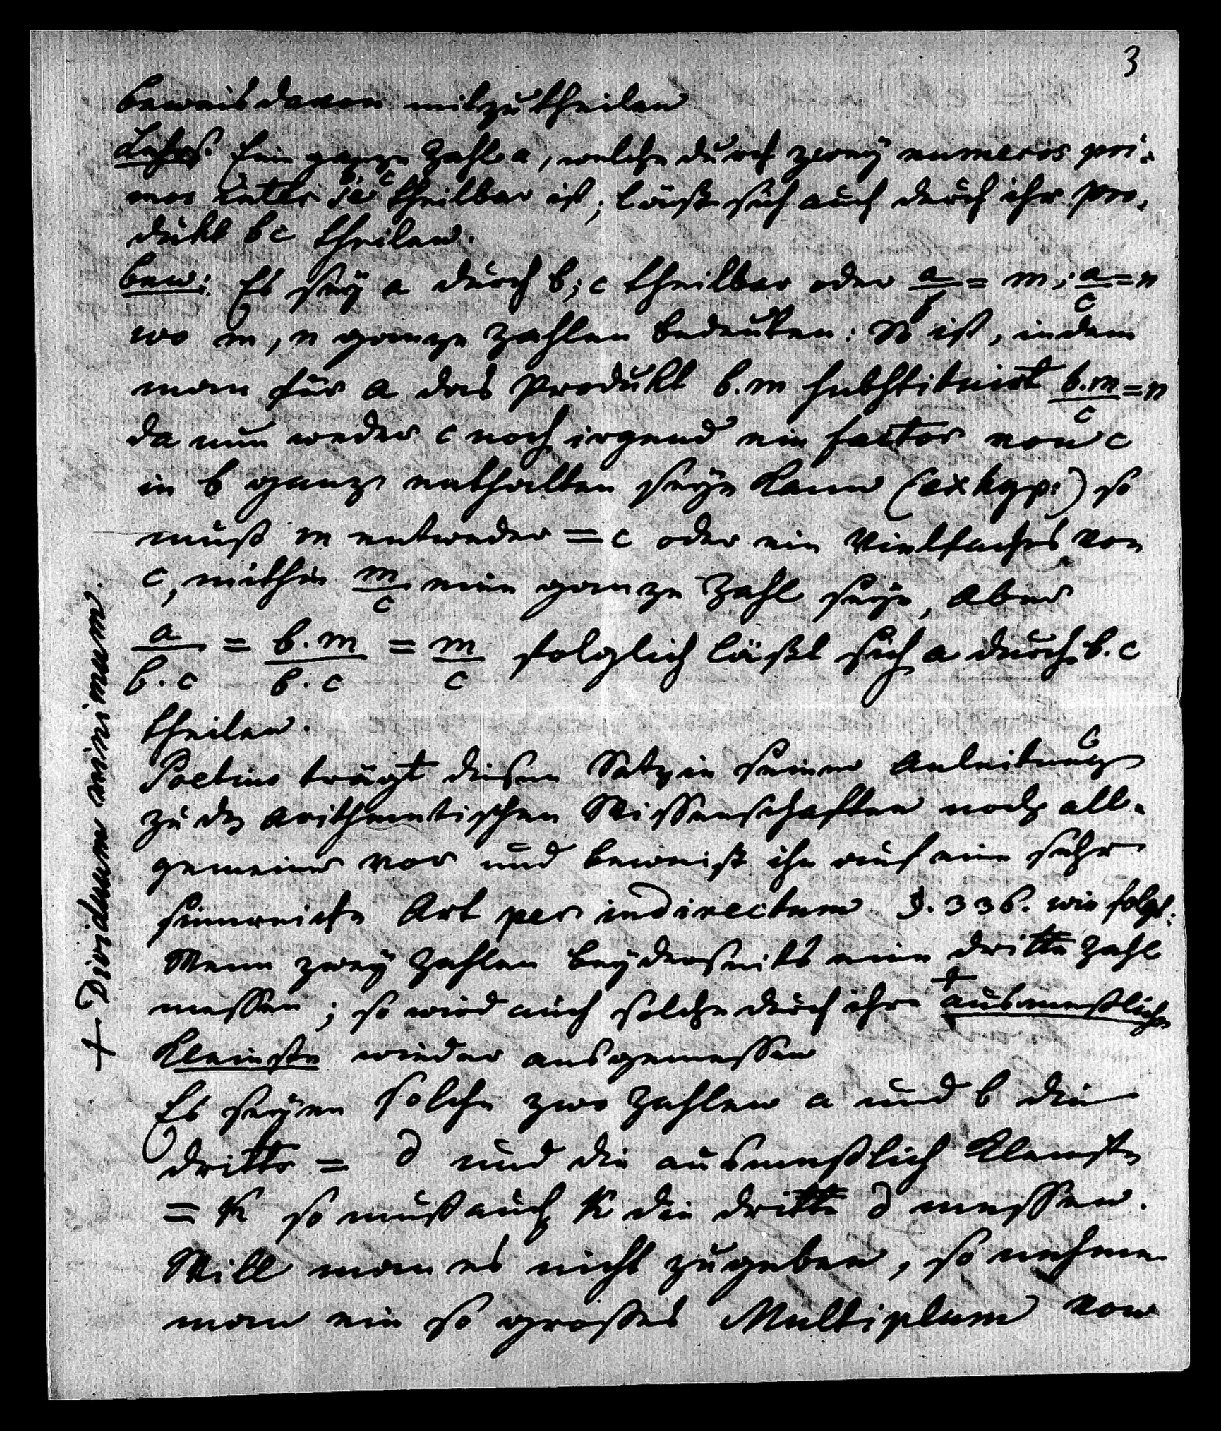 3
beweis davon mitzutheilen
Lehrs. Eine ganze Zahl a, welche durch zwey numeros pri-
mos inter se b, c theilbar ist, läßt sich auch durch ihr Pro-
dukt bc theilen.
Bew: Es sey a durch b; c theilbar oder a/b = m; a/c = n
wo m, n ganze Zahlen bedeuten: So ist, indem
man für a das Produkt b.m substituirt b.m/c = n
da nun weder c noch irgend ein factor von c
in b ganz enthalten seyn kann (ex hyp:) so
muß m entweder = c oder ein Vielfaches von
c, mithin m/c eine ganze Zahl seyn, Aber
a/b.c = b.m/b.c = m/c folglich läßt sich a durch b.c
theilen.
Poetius trägt diesen Satz in seiner Anleitung
zu der arithmetischen Wissenschaften noch all-
gemeiner vor und beweist ihn auf eine sehr
sinnreiche Art per indirectum §. 336. wie folgt:
Wenn zwey Zahlen beyderseits eine dritte Zahl
messen; so wird auch solche durch ihre + ausmeßliche
Kleinste wieder ausgemessen
Es seyen solche zwo Zahlen a und b die
dritte = d und die ausmeßlich Kleinste
= K so muß auch K die dritte d messen.
Will man es nicht zugeben, so nehme
man ein so großes Multiplum von
+ Dividuum minimum.